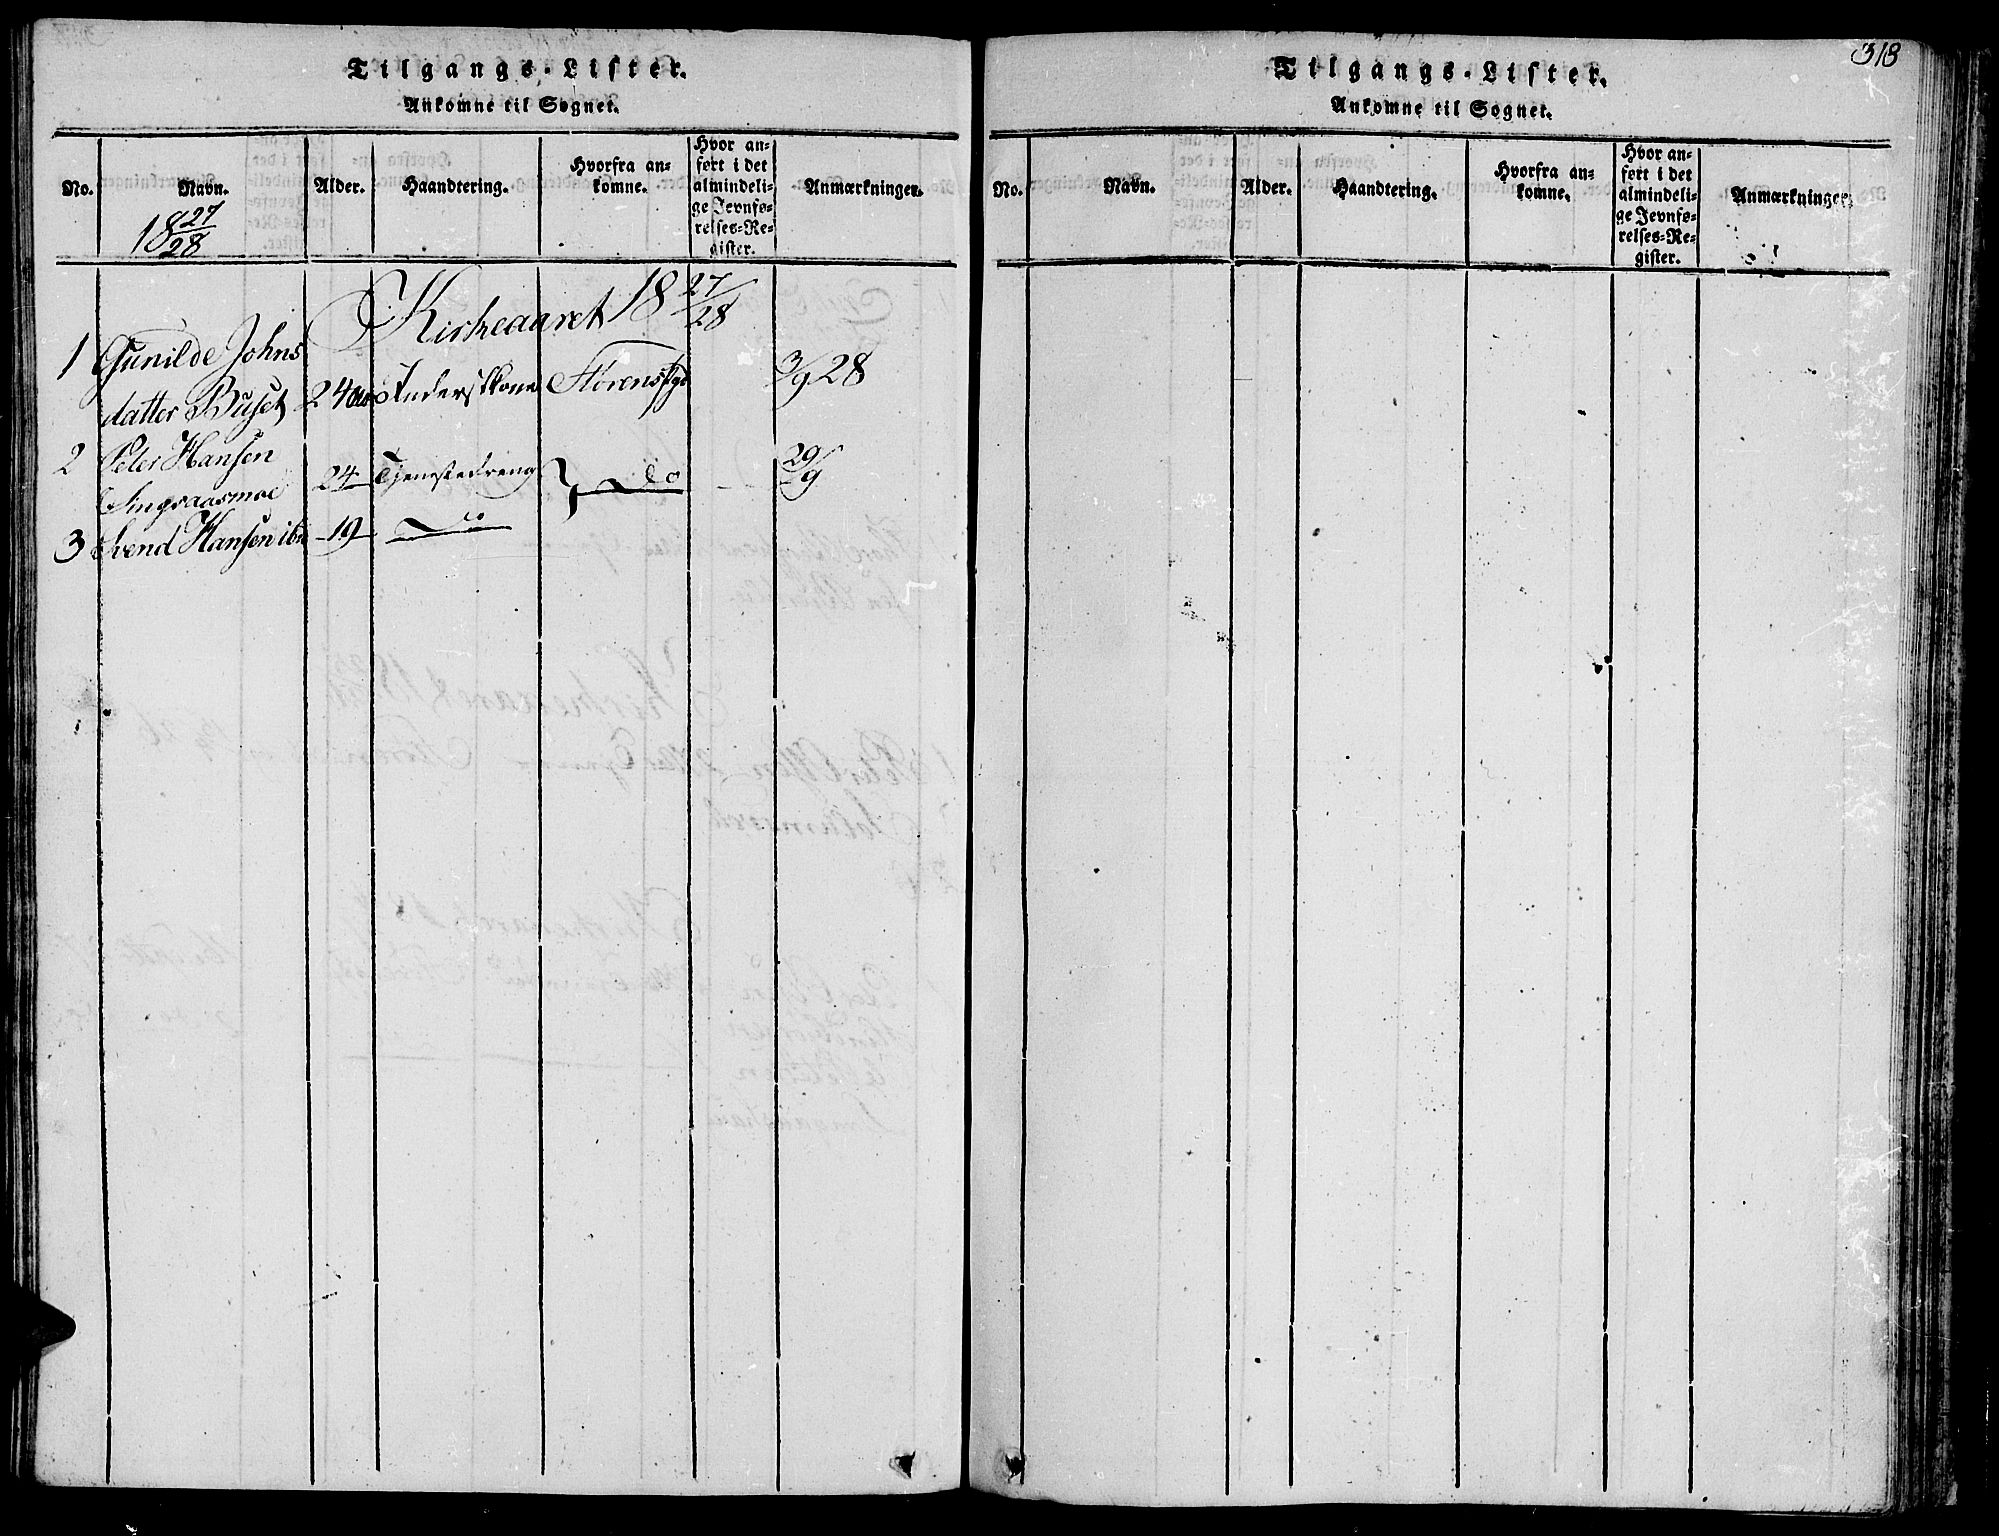 Tilgangs-Lister.
Ankomne til Sognet.
No.
Navn.
Alder.
Haandtering.
Hvorfra an-
komne.
Hvor an-
ført i det
almindeli-
ge Jevnfø-
relses-Re-
gister.
Anmærkninger.
18 27/28
Kirkeaaret 18 27/28
1 Gunilde Johns
datter Buset 24 Størens 3/9 28
2 Peter Hansen
Singsaasmoe 24 Tjenestedreng Do 29/9
3 Svend Hansen ibd 19 Do
318
Tilgangs-Lister.
Ankomne til Sognet.
No.
Navn.
Alder.
Haandtering.
Hvorfra an-
komne.
Hvor an-
ført i det
almindeli-
ge Jevnfø-
relses-Re-
gister.
Anmærkninger.